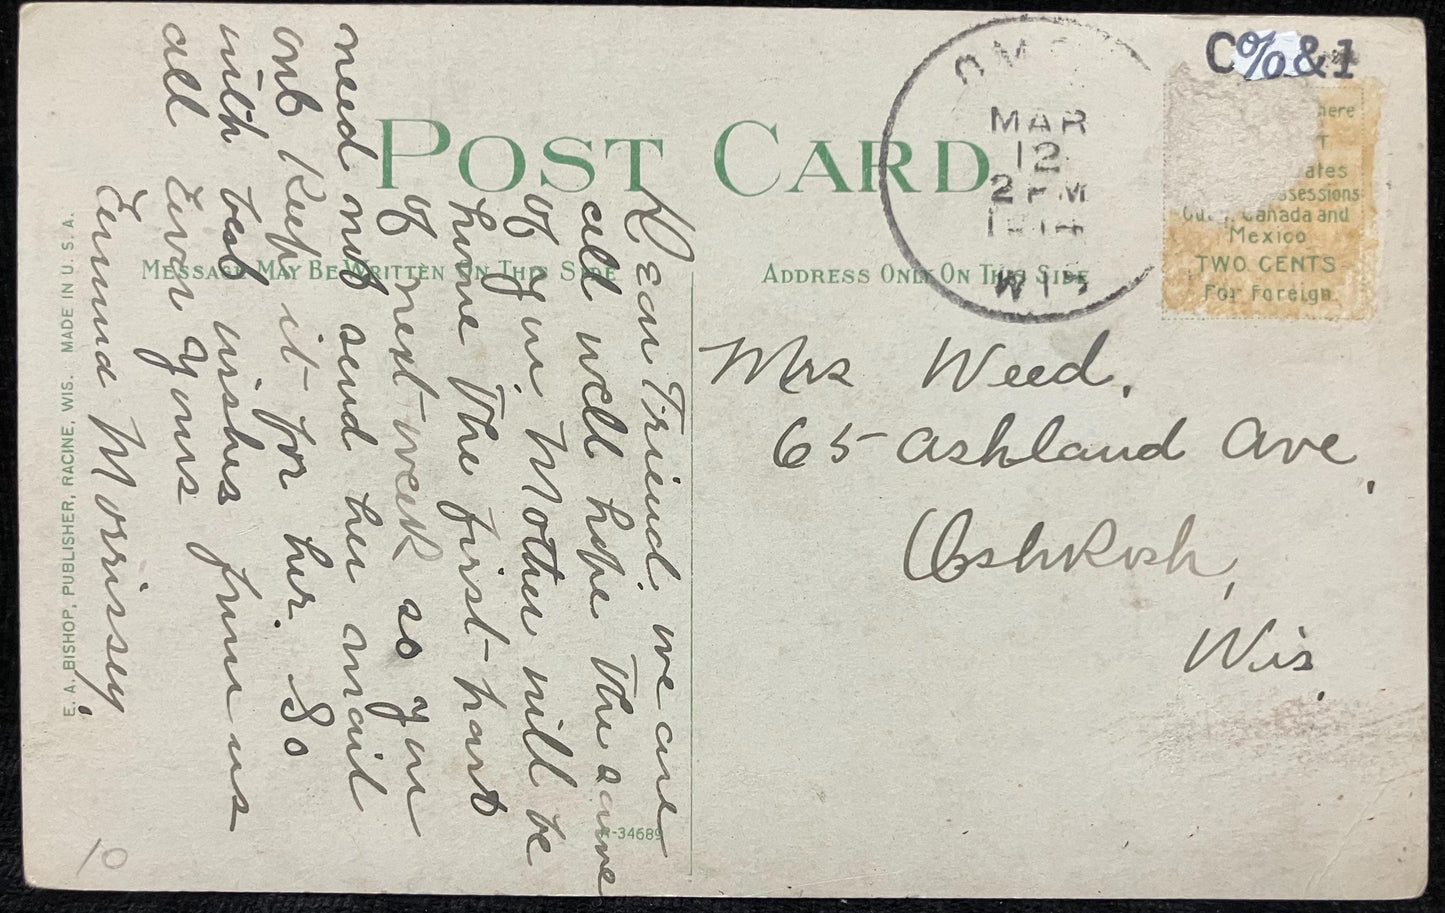 POST CARD
MESSAGE MAY BE WRITTEN ON THIS SIDE
ADDRESS ONLY ON THIS SIDE
MAR
12
2 PM
WIS
C%&1
here
T
ates
ssessions
Canada and
Mexico
TWO CENTS
For Foreign
Mrs Weed.
65 Ashland Ave,
Oshkosh,
Wis.
Dear Friend. we are
all well hope the same
of you, Mother will be
home the first part
of next week so you
need not send her mail
onb keep it for her. So
with best wishes from us
all Ever yours
Emma Morrissey.
R-34689
E. A. BISHOP, PUBLISHER, RACINE, WIS. MADE IN U. S. A.
10